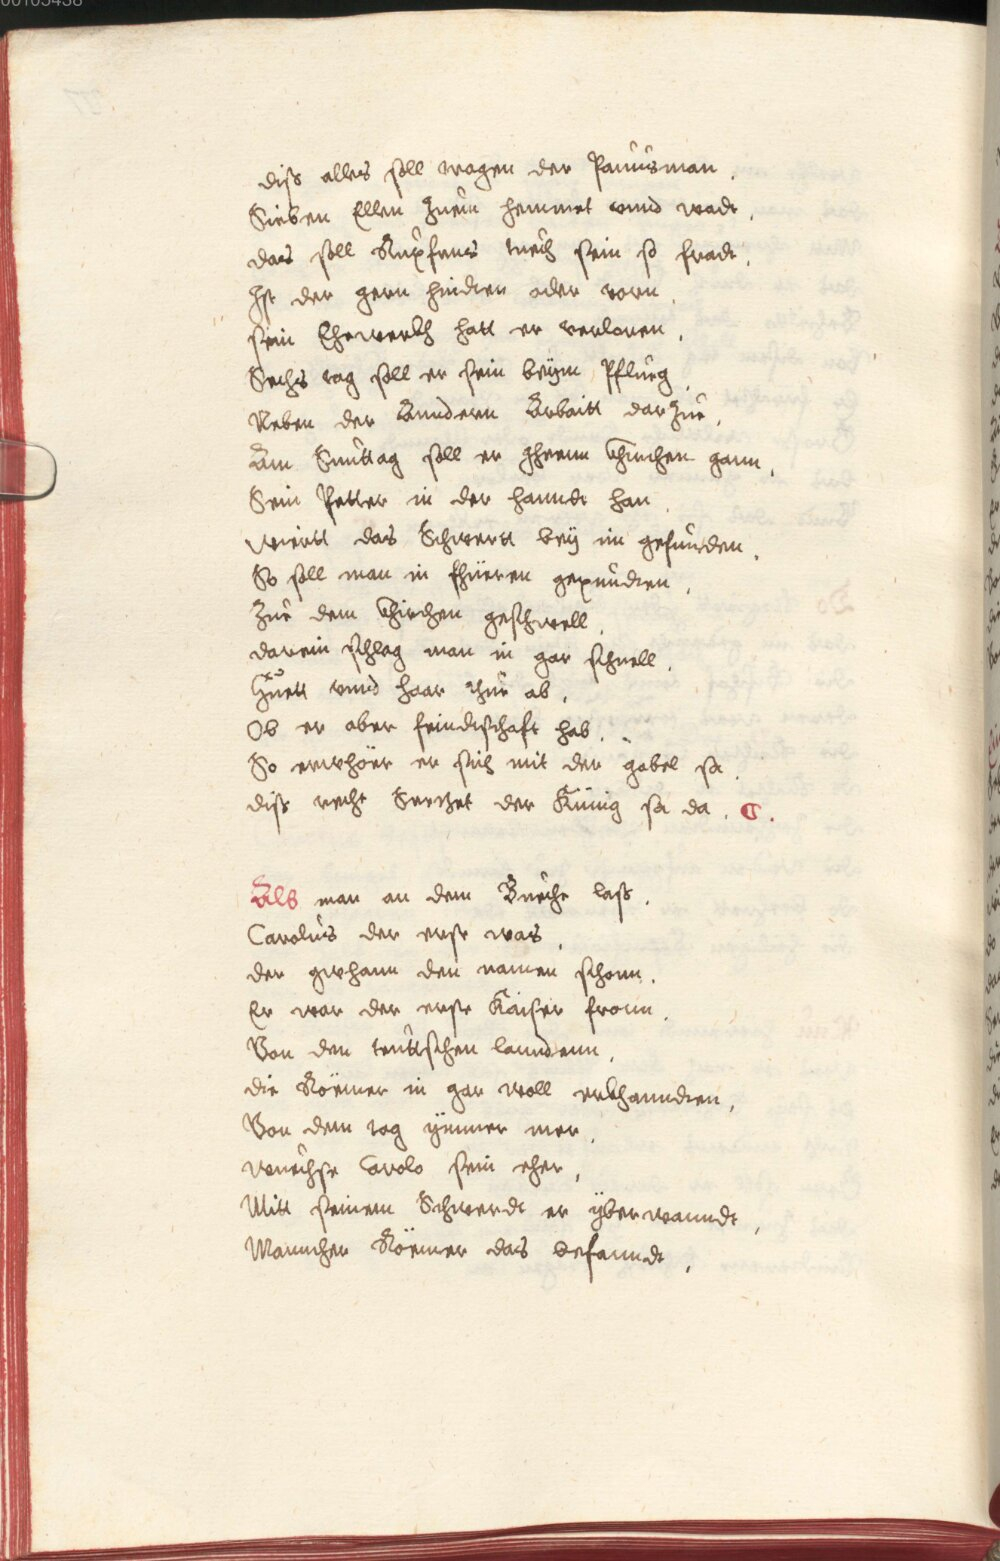 00105438
diß alles soll tragen der Paŭŭrsman.
Siben Ellen Zŭm hemmet vnnd wadt,
das soll Rŭpfens tŭch sein so stadt,
Ist der gern hindten oder vorn,
sein Ehewerkh hatt er verloren,
Sechs tag soll er sein beÿm Pflŭeg,
Neben der Anndern Arbaitt darZŭe,
Am Sŭntag soll er gheenn Khirchen gann,
Sein Petter in der hanndt han,
wiertt das Schwertt beÿ im gefŭnden,
So soll man in fhüeren gepŭndten,
Zŭe dem Khirchen geschwell,
darein schlag man in gar schnell,
Haŭtt vnnd haar Ihme ab,
Ob er aber feindtschafft hab,
So erwhöer er sich mit der gabel sa,
diß recht Seezet der Künig sa da.
Als man an dem Bŭeche laß,
Carolŭs der erst was,
der gwhann den namen schonn,
Er war der erste Kaiser fronn,
Von den teŭttschen lanndenn,
die Römer in gar woll erkhanndten,
Von dem tag ÿmmer mer,
wŭechse Carolo sein eher,
Mitt seinem Schwerdt er ÿberwanndt,
Manncher Römer das befanndt,